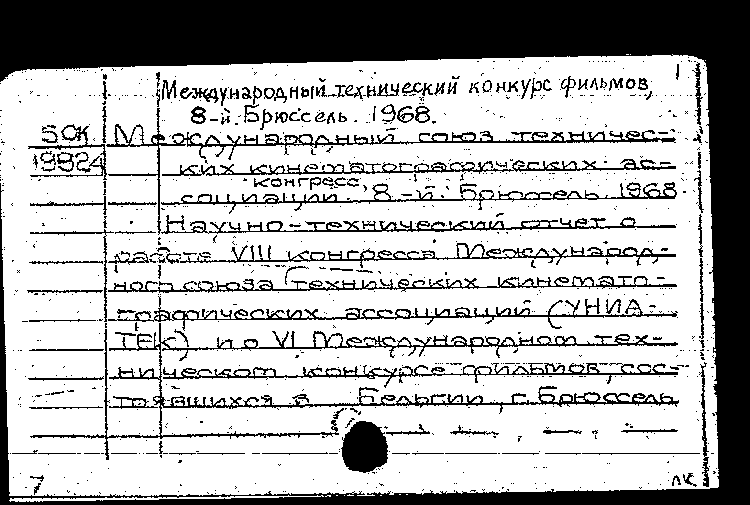 1
Международный технический конкурс фильмов,
8-й. Брюссель. 1968.
5ОК Международный союз техничес-
19824 ких кинематографических ас-
конгресс,
социации. 8-й. Брюссель. 1968
Научно-технический отчет о
работе VIII конгресса Международ-
ного союза технических кинемато-
графических ассоциаций (УНИА-
ТЕК) и о VI Международном тех-
ническом конкурсе фильмов, сос-
тоявшихся в Бельгии, г. Брюссель
7 ЛК